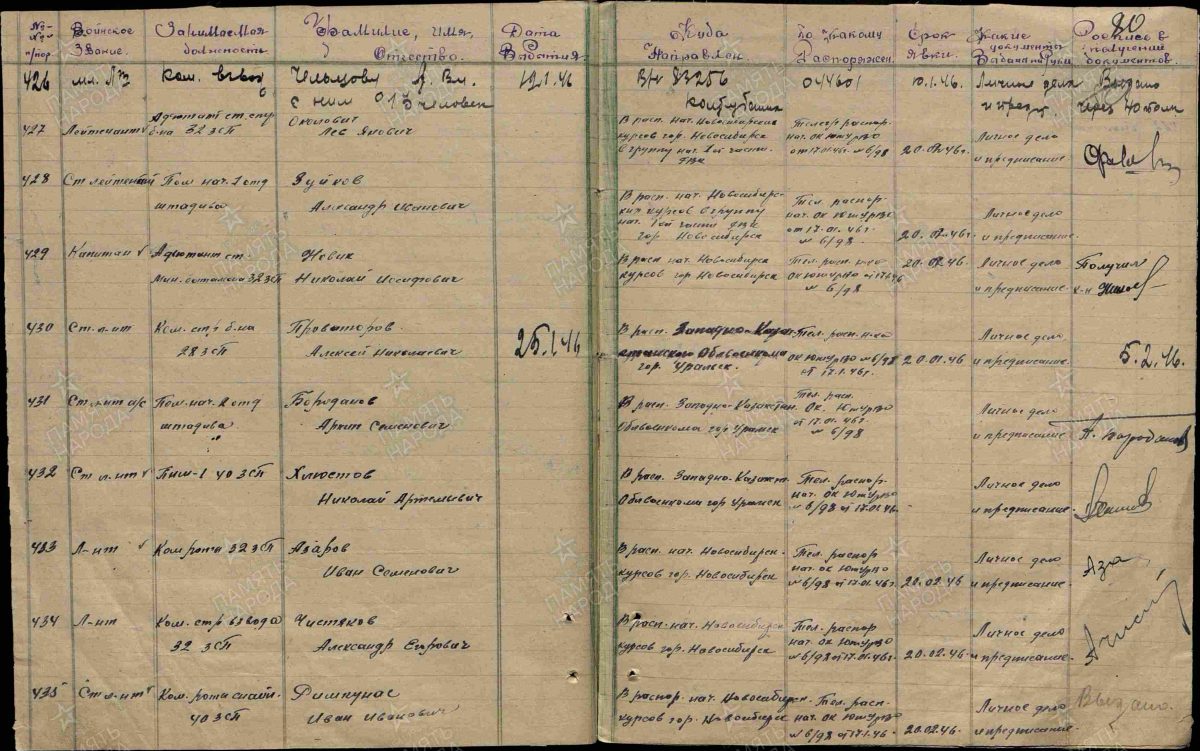 20
№№ п/пор.
Воинское Звание.
Занимаемая должность
Фамилие, имя, Отчество.
Дата Выбытия
Куда Направлен.
По какому Распоряжен.
Срок Явки.
Какие документы Выданы на руки
Роспись в получении документов.
426 мл. л-т Ком. взвод 12.1.46 В/ч 83256 04460 10.1.46. Личные дела Выдано
с ним 013 человек Куйбышев через
427 Лейтенант Адъютант ст. стр. б-на 32 зсп Околович Лев Янович
В расп. нач. Новосибирских курсов гор. Новосибирск в группу нач. 1ой части
Телегр. распор. нач. ОК ЮжУрВО от 17.01.46г. № 6/98 20.02.46г. Личное дело и предписание
428 Ст лейтенант Пом. нач. 1 отд штадива Зуйков Александр Иванович
В расп. нач. Новосибирских курсов в группу нач. 1ой части гор. Новосибирск
Тел. распор. нач. ОК ЮжУрВО от 17.01.46г. № 6/98 20.02.46г. Личное дело и предписание.
429 Капитан Адъютант ст. мин. батальона 32 зсп Николай Иосифович
В расп нач. Новосибирск курсов гор. Новосибирск
Тел. расп. н-ка ОК ЮжУрВО от 17.1.46 № 6/98 20.02.46г. Личное дело и предписание. Получил к-н
430 Ст. л-нт Ком. стр б-на 28 зсп Провоторов Алексей Николаевич 25.1.46
В расп. Западно-Казахстанского Облвоенкома гор. Уральск.
Тел. расп. н-ка ОК ЮжУрВО № 6/98 от 17.1.46г. 20.01.46 Личное дело и предписание. 5.2.46.
431 Ст. л-нт а/с Пом. нач. 2 отд штадива Бороданов Семенович
В расп. Западно-Казахстан. Облвоенкома гор Уральск
Тел. расп. ОК. ЮжУрВО от 17.01.46г. № 6/98 Личное дело и предписание
432 Ст л-нт ПНШ-1 40 зсп Хлюстов Николай Артемьевич
В расп. Западно-Казахст. Облвоенкома гор Уральск
Тел. распор. нач. ОК ЮжУрВО № 6/98 от 17.01.46. Личное дело и предписание.
433 Л-нт Ком роты 32 зсп Азаров Иван Семенович
В расп. нач. Новосибирск. курсов гор. Новосибирск
Тел. распор нач. ОК ЮжУрВО № 6/98 от 17.01.46г. 20.02.46 Личное дело и предписание. Аза
434 Л-нт Ком. стр взвода 32 зсп Чистяков Александр Егорович
В расп. нач. Новосибирск курсов гор. Новосибирск
Тел. распор нач. ОК ЮжУрВО № 6/98 от 17.01.46г. 20.02.46. Личное дело и предписание.
435 Ст л-нт Ком. роты снайп. 40 зсп Римкунас Иван Иванович
В распор. нач. Новосибирск. курсов гор. Новосибирск
Тел. расп. нач. ОК ЮжУрВО № 6/98 от 17.1.46. 20.02.46 Личное дело и предписание. Выдано.
ПАМЯТЬ НАРОДА